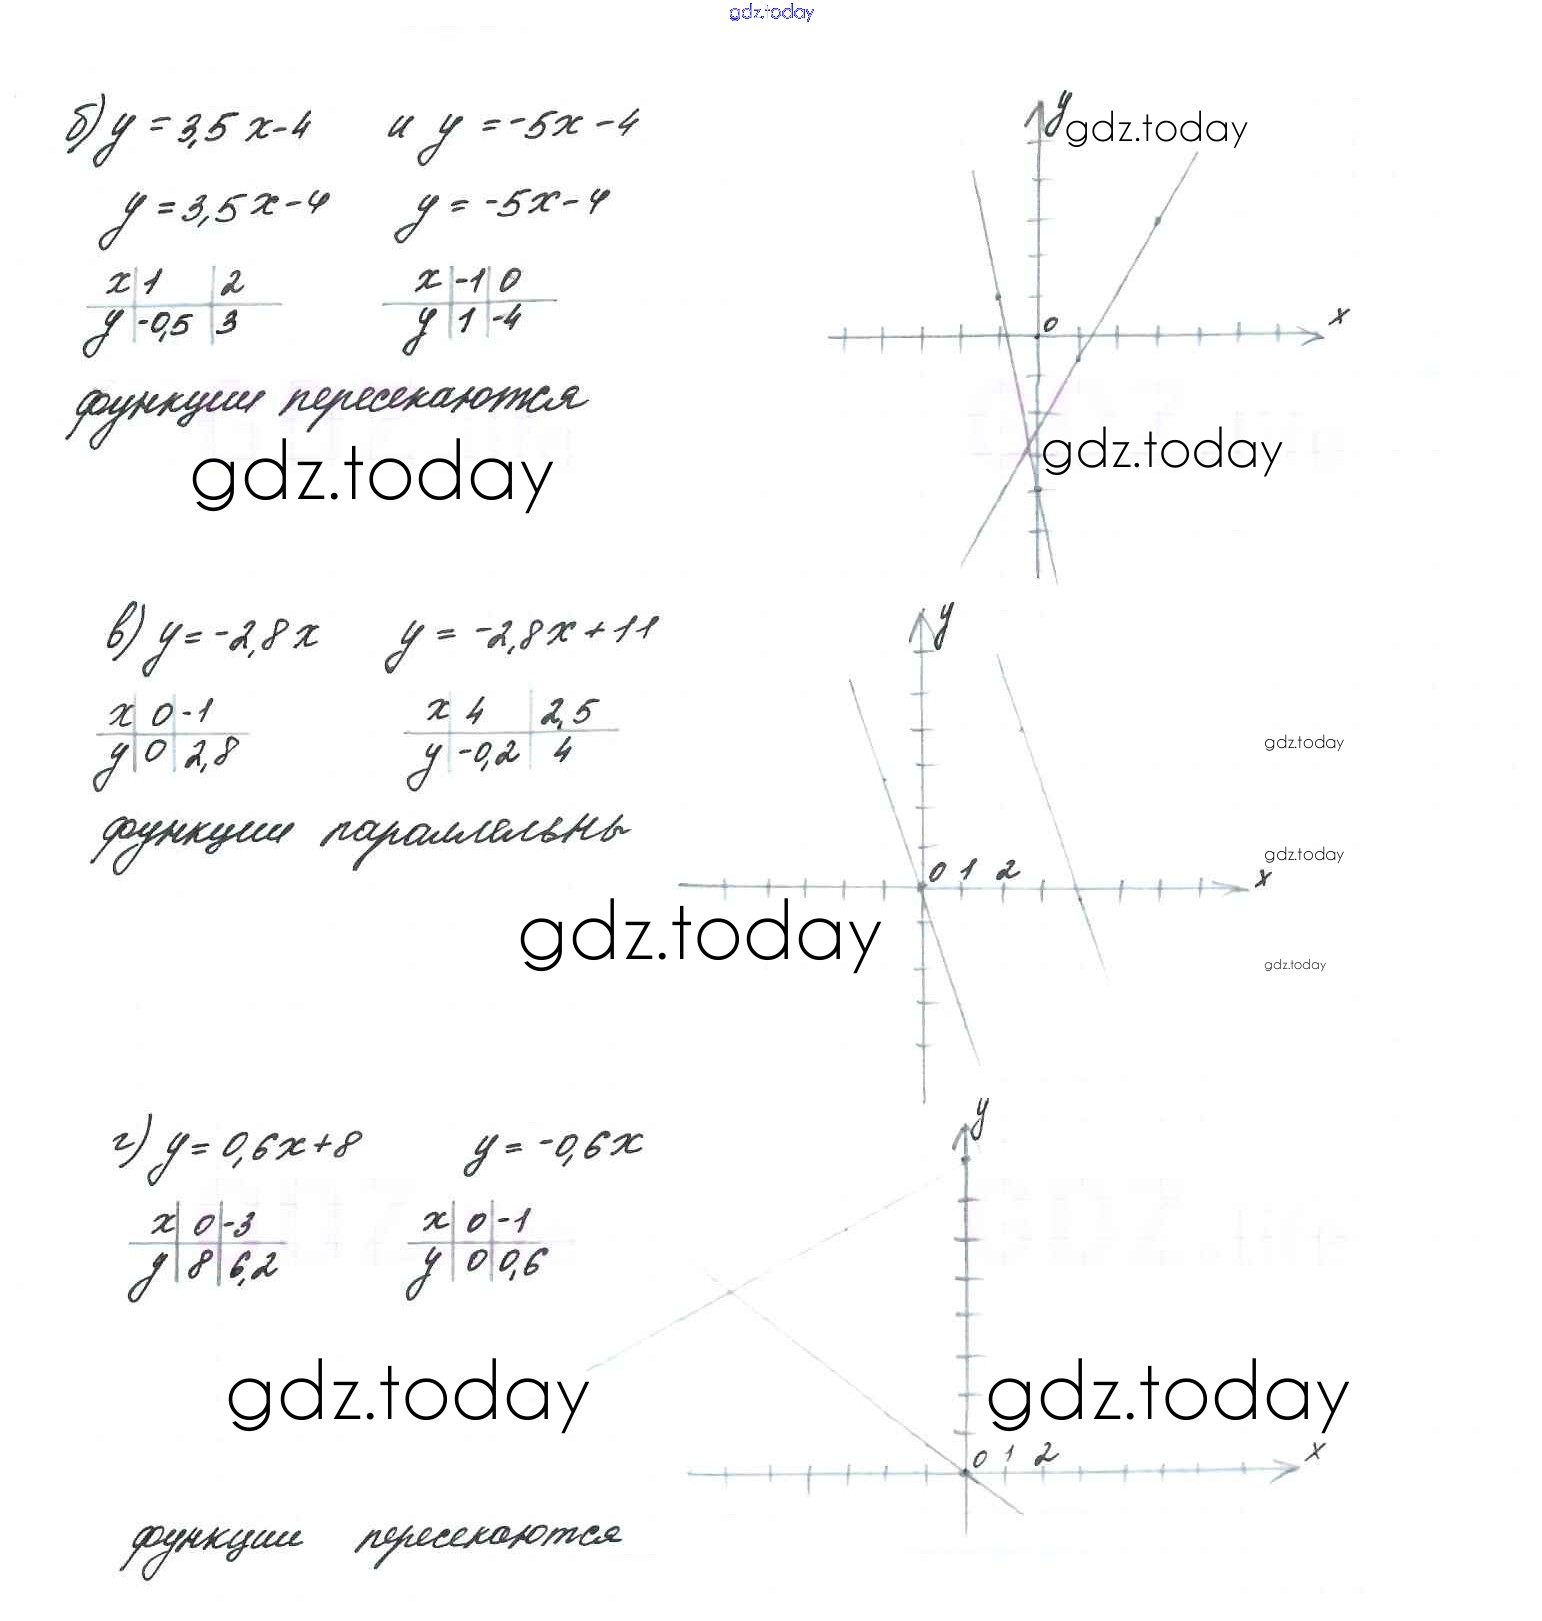 gdz.today
б) y = 3,5x-4 и y = -5x-4
y = 3,5x-4 y = -5x-4
x 1 2 x -1 0
y -0,5 3 y 1 -4
функции пересекаются
gdz.today
y
gdz.today
0
x
gdz.today
в) y = -2,8x y = -2,8x+11
x 0 -1 x 4 2,5
y 0 2,8 y -0,2 4
функции параллельны
gdz.today
y
0 1 2
x
gdz.today
gdz.today
gdz.today
г) y = 0,6x+8 y = -0,6x
x 0 -3 x 0 -1
y 8 6,2 y 0 0,6
gdz.today
y
gdz.today
0 1 2
x
функции пересекаются